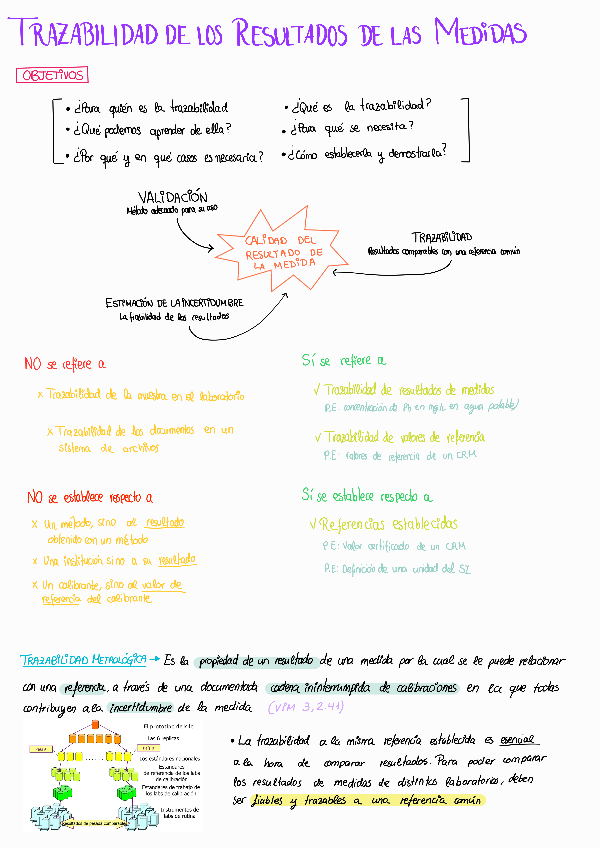 TRAZABILIDAD DE LOS RESULTADOS DE LAS MEDIDAS
OBJETIVOS
• ¿Para quién es la trazabilidad
• ¿Qué podemos aprender de ella?
• ¿Por qué y en qué casos es necesaria?
• ¿Qué es la trazabilidad?
• ¿Para qué se necesita?
• ¿Cómo establecerla y demostrarla?
VALIDACIÓN
Método adecuado para su uso
CALIDAD DEL
RESULTADO DE
LA MEDIDA
TRAZABILIDAD
Resultados comparables con una referencia común
ESTIMACIÓN DE LA INCERTIDUMBRE
La fiabilidad de los resultados
NO se refiere a
x Trazabilidad de la muestra en el laboratorio
x Trazabilidad de los documentos en un
sistema de archivos
Sí se refiere a
✓ Trazabilidad de resultados de medidas
P.E: concentración de Pb en mg/L en agua potable)
✓ Trazabilidad de valores de referencia
P.E: valores de referencia de un CRM
NO se establece respecto a
x Un método, sino al resultado
obtenido con un método
x Una institución sino a su resultado
x Un calibrante, sino al valor de
referencia del calibrante
Sí se establece respecto a
✓ Referencias establecidas
P.E: Valor certificado de un CRM
P.E: Definición de una unidad del SI
TRAZABILIDAD METROLÓGICA → Es la propiedad de un resultado de una medida por la cual se le puede relacionar
con una referencia, a través de una documentada cadena ininterrumpida de calibraciones en la que todas
contribuyen a la incertidumbre de la medida (VIM 3, 2.41)
El prototipo de kilo
Las 6 replicas
Los estándares nacionales
Estandares
de referencia de los labs
de calibración
Estandares de trabajo de
los labs de calibración
Instrumentos de
labs de rutina
Resultados de pesada comparables
• La trazabilidad a la misma referencia establecida es esencial
a la hora de comparar resultados. Para poder comparar
los resultados de medidas de distintos laboratorios, deben
ser fiables y trazables a una referencia común